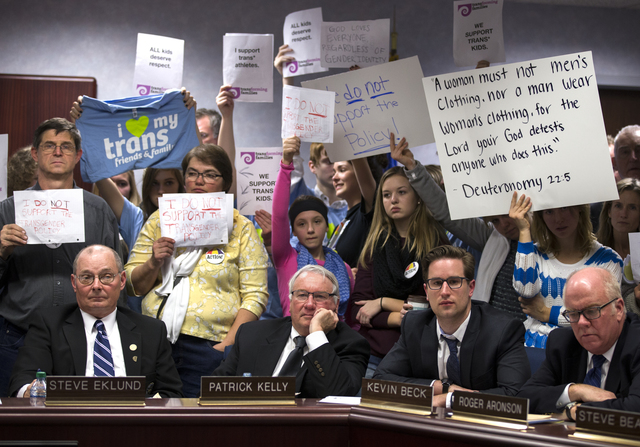 ALL kids
deserve
respect.
I support
trans*
athletes.
GOD LOVES
EVERYONE
REGARDLESS OF
GENDER IDENTITY
transforming families
WE
SUPPORT
TRANS*
KIDS.
i my
trans
friends & family
do not
support the
Policy!
"A woman must not men's
clothing, nor a man wear
womans clothing, for the
Lord your God detests
anyone who does this."
- Deuteronomy 22:5
WE
SUPPORT
TRANS*
KIDS.
I DO NOT
SUPPORT the
I DO NOT
SUPPORT the
STEVE EKLUND
PATRICK KELLY
KEVIN BECK
ROGER ARONSON
STEVE BE